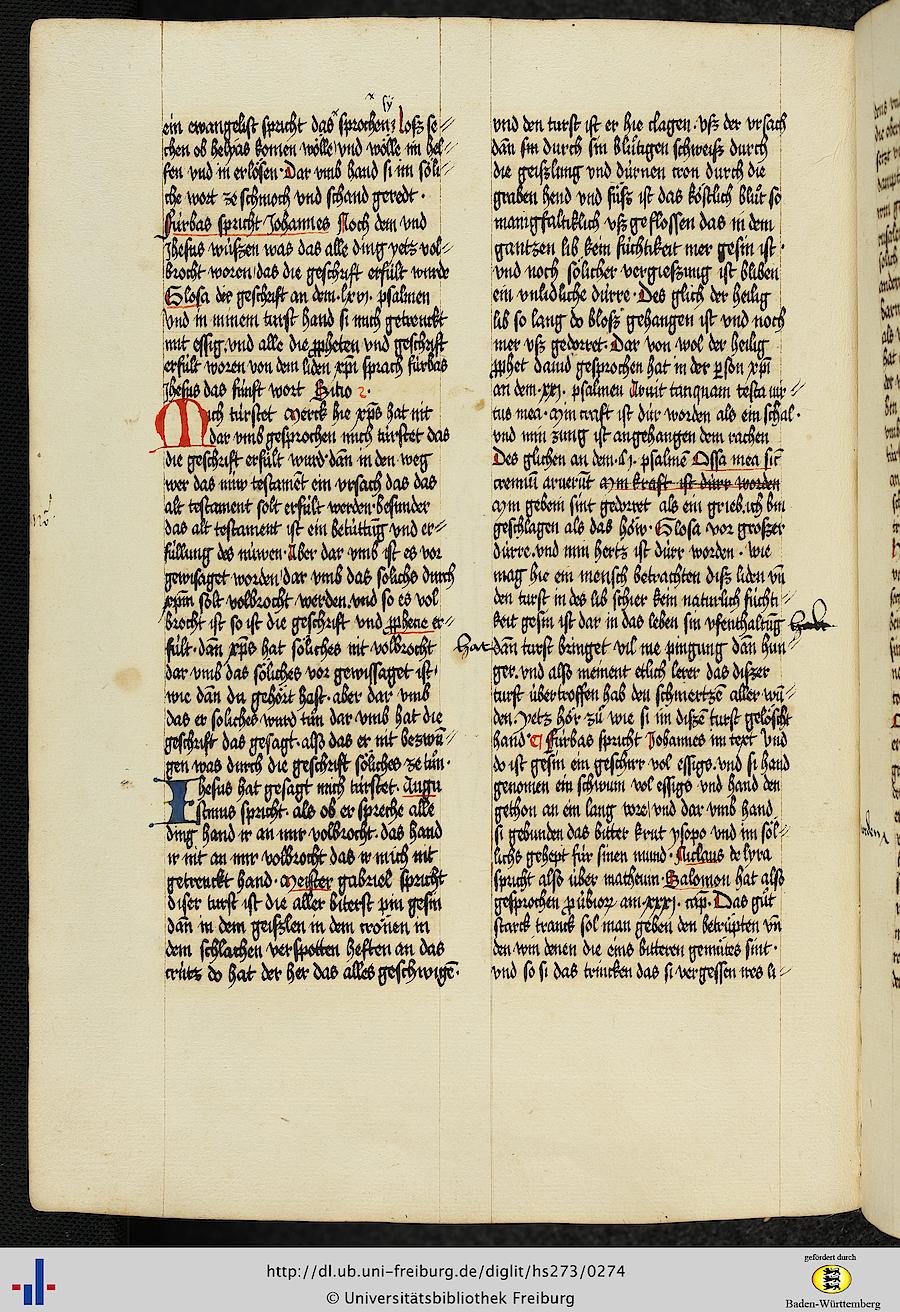 ein ewangelist spricht das sprochen loss se//
chen ob helyas komen wölle vnd wölle im hel//
fen vnd in erlösen Dar vmb hand si im söli//
che wort ze schmoch vnd schand geredt ·
Fürbas spricht Johannes Noch dem vnd
Jhesus wüssen was das alle ding yetz vol//
brocht woren das die geschrift erfült wurde
Glosa der geschrift an dem · lxvj · psalmen
vnd in minem turst hand si mich getrenckt
mit essig · vnd alle die ꝓpheten vnd geschrift
erfült woren von dem liden xpi sprach fürbas
Jhesus das fünft wort Sitio
Mich türstet Merck hie xp̄s hat nit
dar vmb gesprochen mich türstet das
die geschrift erfült wurd · dān in den weg
wer das nüw testament ein vrsach das das
alt testament solt erfült werden · besunder
das alt testament ist ein betüttūg vnd er//
füllung des nüwen · Aber dar vmb ist es vor
gewisaget worden dar vmb das solichs durch
xpm̄ solt volbrocht werden · vnd so es vol
brocht ist so ist die geschrift vnd ꝓphecie er//
fült · dān xp̄s hat söliches nit volbrocht
dar vmb das söliches vor gewissaget ist ·
wie dān du gehört hast · aber dar vmb
das er soliches wurd tůn dar vmb hat die
geschrift das gesagt · alss das er nit bezwū//
gen was durch die geschrift söliches ze tůn ·
Jhesus hat gesagt mich türstet · Augu
stinus spricht · als ob er spreche alle
ding hand ir an mir volbrocht · das hand
ir nit an mir volbrocht das ir mich nit
getrenckt hand · Meister gabriel spricht
diser turst ist die aller biterst pin gesin
dān in dem geislen in dem crönen in
dem schlachen verspotten heften an das
crütz do hat der her das alles geschwigē ·
vnd den turst ist er hie clagen · vss der vrsach
dān sin durch sin blůtigen schweiss durch
die geislung vnd dürnen cron durch die
graben hend vnd füss ist das köstlich blůt so
manigfaltklich vss geflossen das in dem
gantzen lib kein füchtikeit mer gesin ist ·
vnd noch sölicher vergiessung ist bliben
ein vnlidliche dürre · Des glich der heilig
lib so lang do bloss gehangen ist vnd noch
mer vss gedorret · Dar von wol der heilig
ꝓphet dauid gesprochen hat in der ꝑson xpi
an dem · xxj · psalmen Aruit tanquam testa uir//
tus mea · Min craft ist dür worden als ein schal ·
vnd min zung ist angehangen dem rachen
Des glichen an dem · cj · psalmē Ossa mea sic̄
cremiū aruerūt Min kraft ist dürr worden
Min gebein sint gedorret als ein grieb · ich bin
geschlagen als das höw · Glosa vor grosser
dürre · vnd min hertz ist dürr worden · wie
mag hie ein mensch betrachten diss liden vn̄
den turst in des lib schier kein naturlich füchti//
keit gesin ist dar in das leben sin vfenthaltūg
hat dān turst bringet vil me pingung dān hun//
ger · vnd alss meinent etlich lerer das diser
turst übertroffen hab den schmertzē aller wū//
den · yetz hör zů wie si im disē turst gelöscht
hand · Fürbas spricht Johannes im text Vnd
do ist gesin ein geschirr vol essigs · vnd si hand
genomen ein schwum vol essigs vnd hand den
gethon an ein lang rore vnd dar vmb hand
si gebunden das bitter krut ysopo vnd im söl//
lichs gehept für sinen mund · Niclaus de lyra
spricht also über matheum · Salomon hat also
gesprochen ꝓubioꝝ am · xxxj · cap̄ · Das gůt
starck tranck sol man geben den betrüpten vn̄
den win denen die eins bitteren gemütes sint ·
vnd so si das trincken das si vergessen ires li//
http://dl.ub.uni-freiburg.de/diglit/hs273/0274
© Universitätsbibliothek Freiburg
gefördert durch
Baden-Württemberg